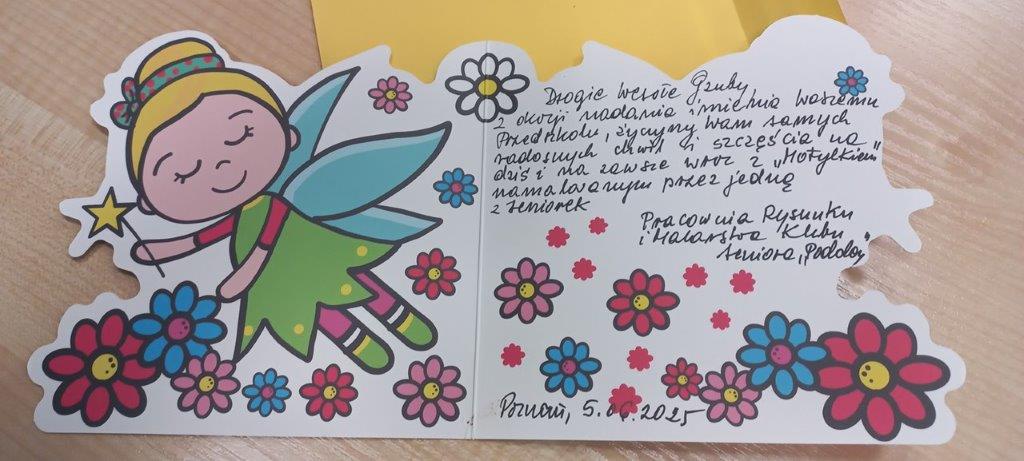 Drogie Wesołe Gzuby,
z okazji nadania imienia Waszemu
Przedszkolu, życzymy Wam samych
radosnych chwil i szczęścia na
dziś i na zawsze wraz z „Motylkiem"
namalowanym przez jedną
z seniorek
Pracownia Rysunku
i Malarstwa Klubu
Seniora „Podolany"
Poznań, 5.06.2025